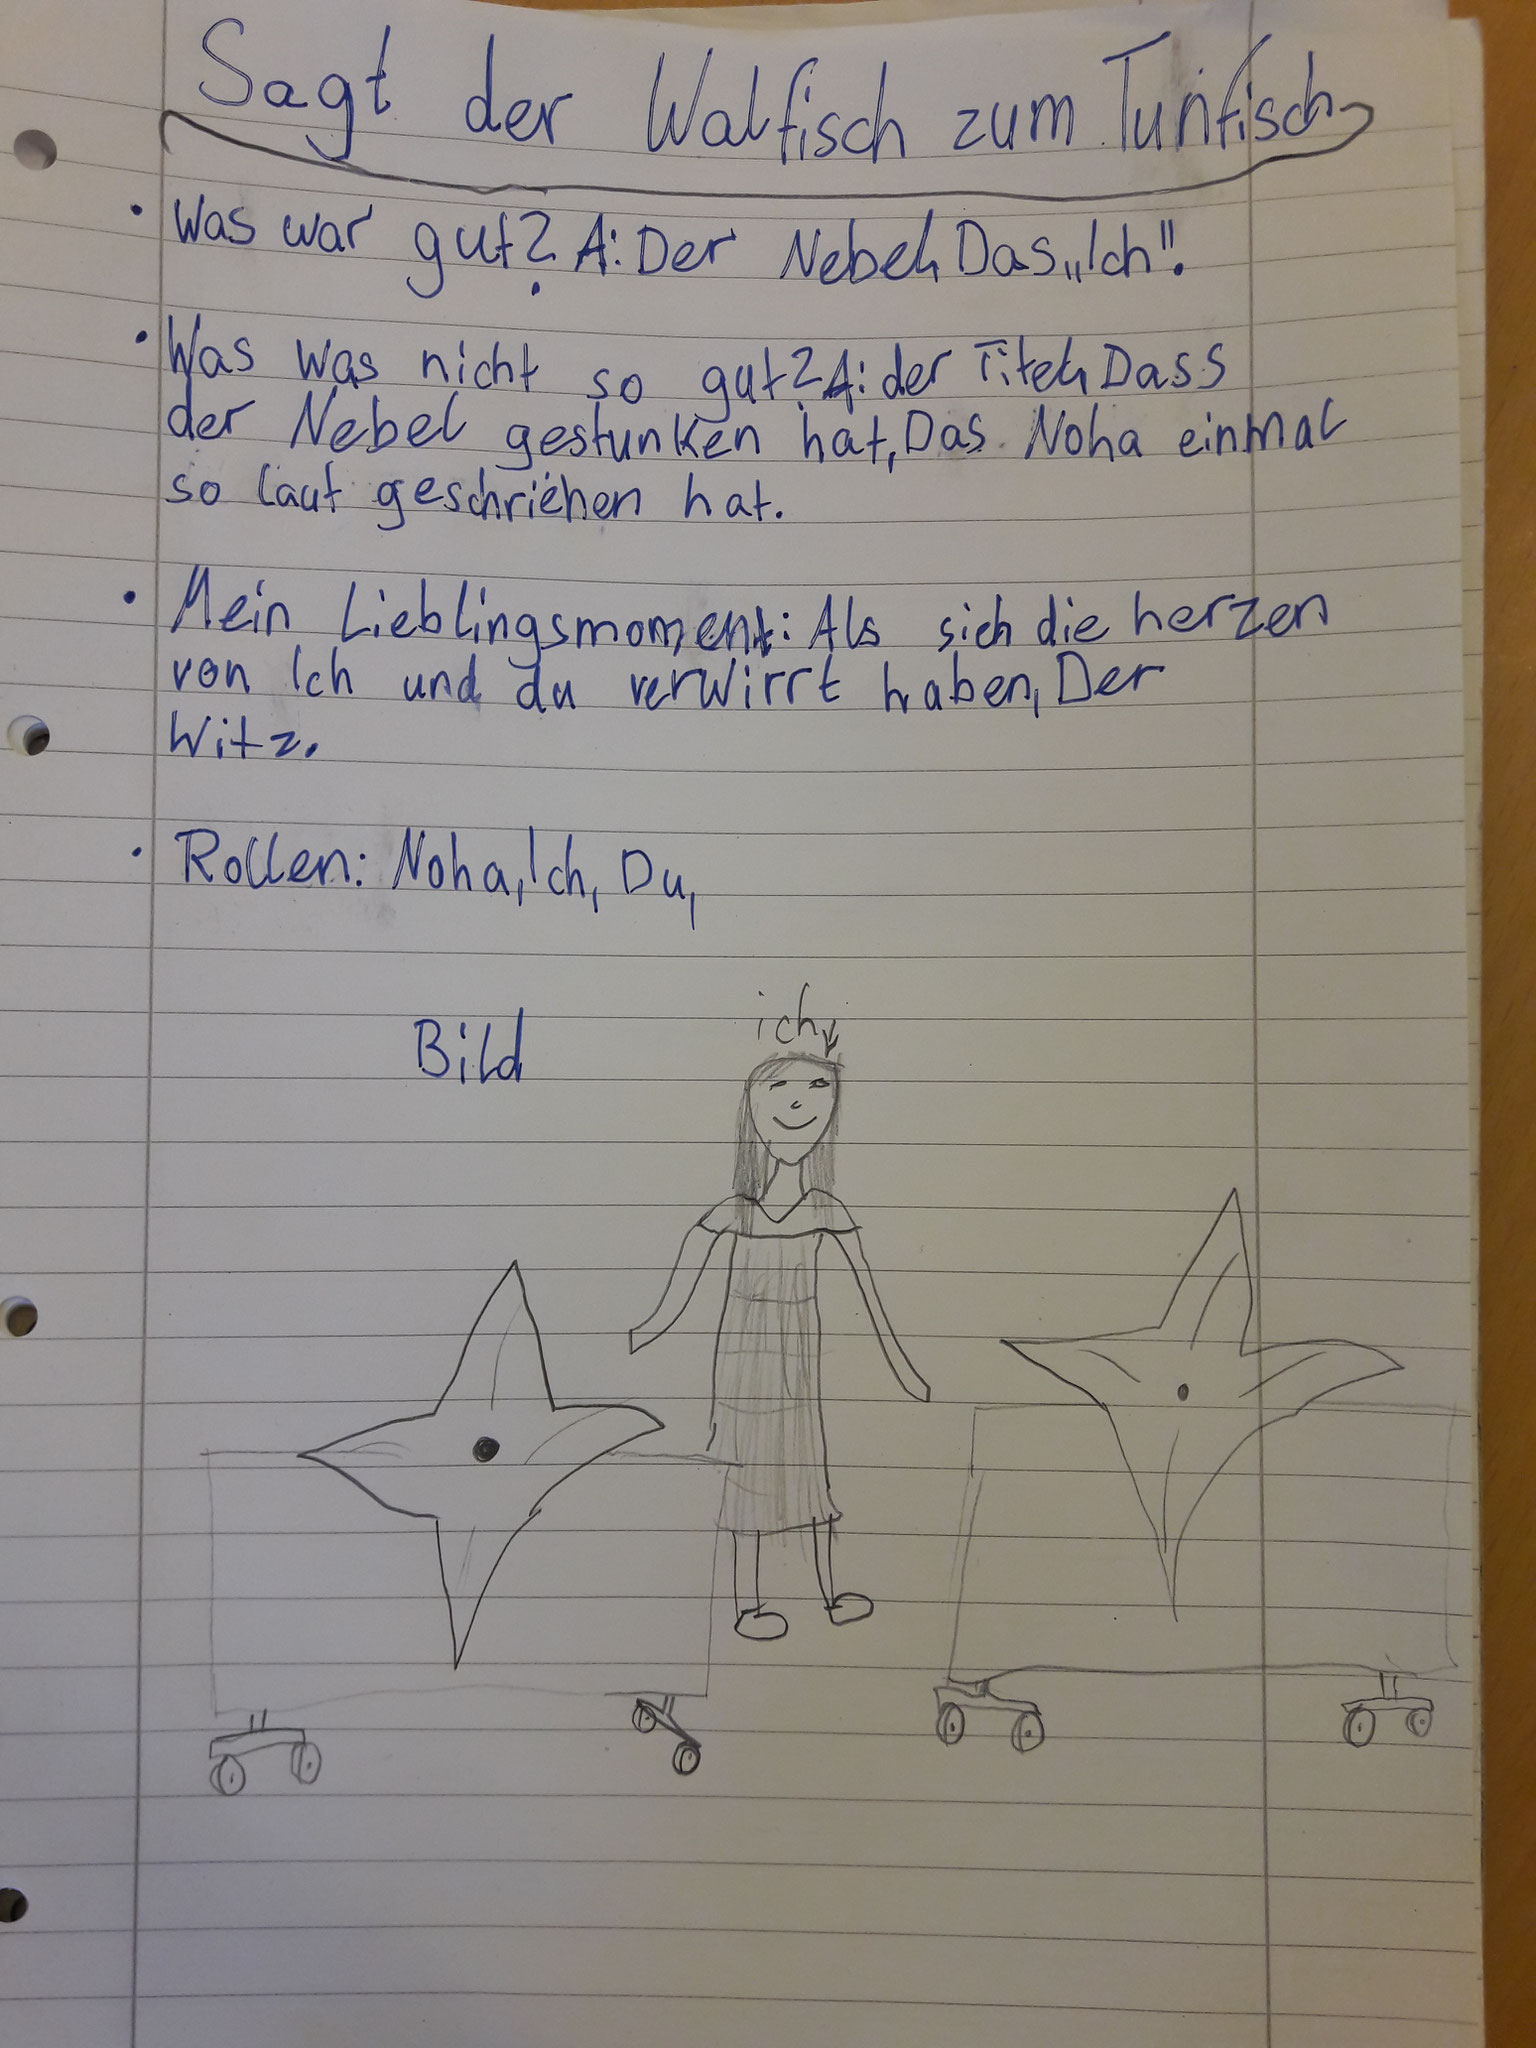 Sagt der Walfisch zum Tunfisch
• Was war gut? A: Der Nebel, Das „Ich".
• Was was nicht so gut? A: der Titel, Dass
der Nebel gestunken hat, Das Noha einmal
so laut geschriehen hat.
• Mein Lieblingsmoment: Als sich die herzen
von Ich und du verwirrt haben, Der
Witz.
• Rollen: Noha, Ich, Du,
ich
Bild